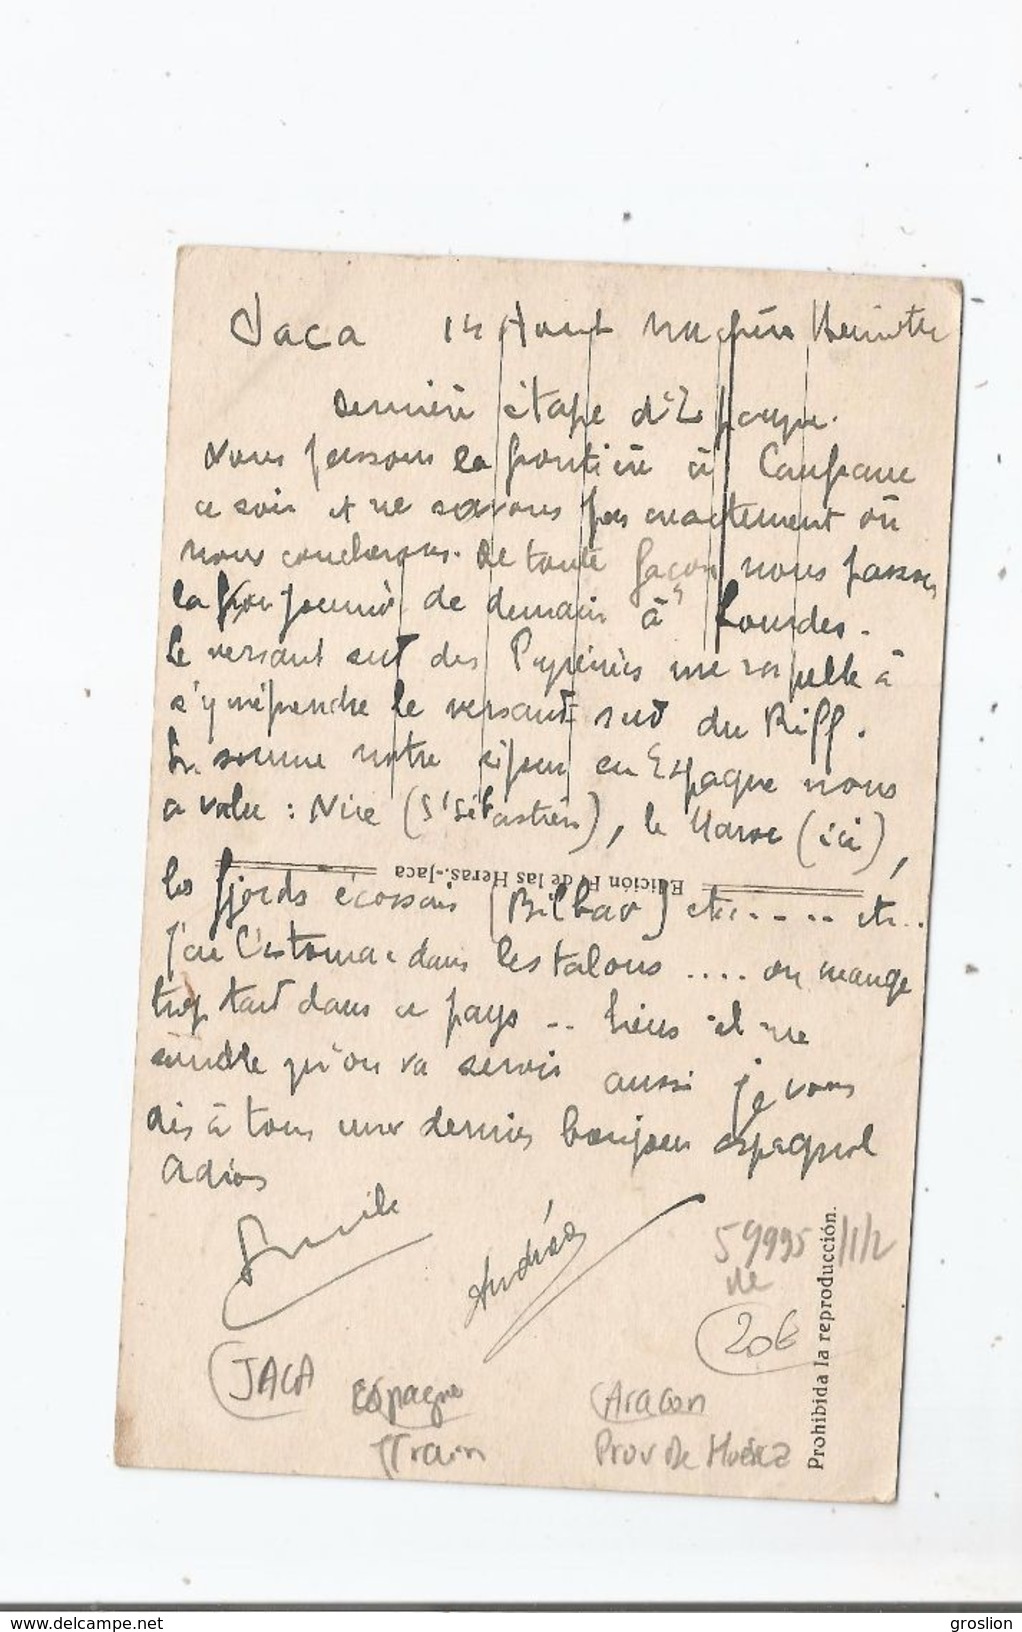 Jaca 14 Aout
Dernière étape d'Espagne.
Nous passons la frontière à Canfranc
ce soir et ne savons pas exactement où
nous coucherons. De toute façon nous passons
la journée de demain à Lourdes.
Le versant sud des Pyrénées me rappelle à
s'y méprendre le versant sud du Riff.
En somme notre séjour en Espagne nous
a valu : Nice (St Sébastien), le Maroc (ici),
Edición F. de las Heras.-Jaca
les fjords écossais (Bilbao) etc.... etc..
J'ai l'estomac dans les talons .... on mange
trop tard dans ce pays .. tiens il me
semble qu'on va servir aussi je vous
dis à tous un dernier bonjour espagnol
Adios
Andrée
59995 /1/2
20€
JACA Espagne Aragon
Train Prov De Huesca
Prohibida la reproducción.
www.delcampe.net
groslion